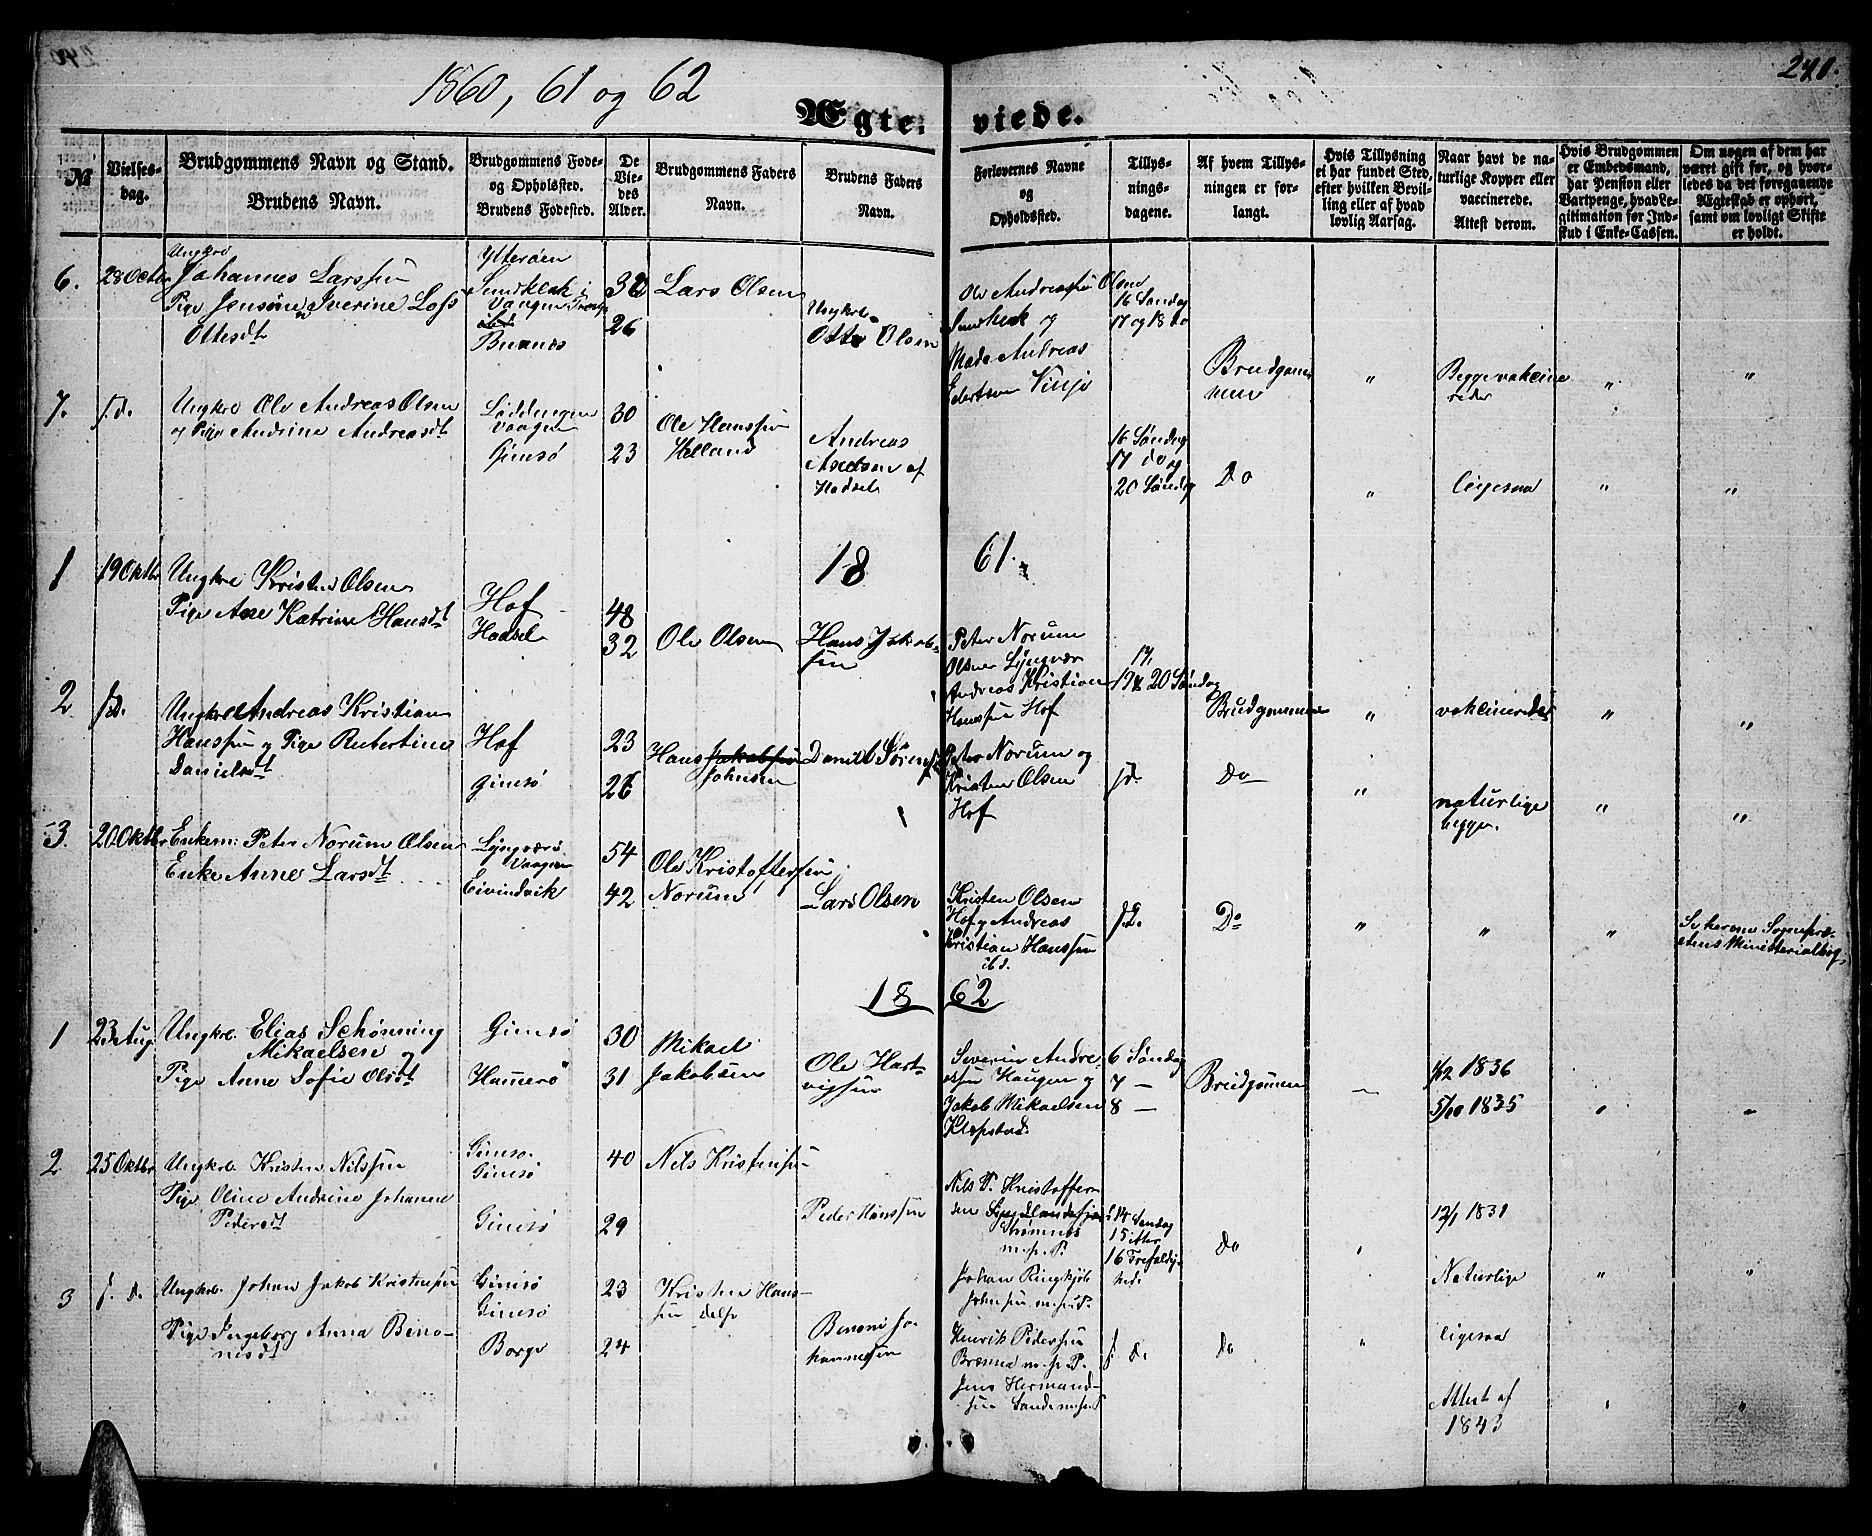 1860, 61 og 62
241.
Ægte-viede.
№
Vielses-
dag.
Brudgommens Navn og Stand.
Brudens Navn.
Brudgommens Føde-
og Opholdsted.
Brudens Fødested.
De
Vie-
des
Alder.
Brudgommens Faders
Navn.
Brudens Faders
Navn.
Forlovernes Navne
og
Opholdssted.
Tillys-
nings-
dagene.
Af hvem Tillys-
ningen er for-
langt.
Hvis Tillysning
ei har fundet Sted,
efter hvilken Bevil-
ling eller af hvad
lovlig Aarsag.
Naar havt de na-
turlige Kopper eller
vaccinerede.
Attest derom.
Hvis Brudgommen
er Embedsmand,
har Pension eller
Vartpenge, hvad Le-
gitimation for Ind-
skud i Enke-Cassen.
Om nogen af dem har
været gift før, og hvor-
ledes da det foregaaende
Ægteskab er ophørt,
samt om lovligt Skifte
er holdt.
6.
28 Octbr
Ungkrl
Johannes Larssen
Pige Iverine
Ottesdt
Ytterøen
Vaagen
32
26
Lars Olsen
Ungkrl.
Otto Olsen
Ole Andreassen Olsen
og
Mads Andreas
16 Søndag
17 og 18 do
Brudgommen
"
Begge vakcine
reder
"
"
7.
s. d.
Ungkrl Ole Andreas Olsen
og Pige Andrine Andreasdt
Løddingen
Vaagen
Gimsø
30
23
Ole Hanssen
Helland
Andreas
af
Hadsel
16 Søndag
17 do og
20 Søndag
Do
"
ligesaa
"
"
1861.
1
19 Oktbr
Ungkrl Kristen Olsen
Pige Ane Katrine Hansdt
Hof
Hadsel
48
32
Ole Olsen
Hans Jakob-
sen
Peter Norum
Olsen Lyngvær
Andreas Kristian
Hanssen Hof
17,
19 & 20 Søndag
Brudgommen
"
vakcinerede
"
"
2
s. d.
Ungkrl Andreas Kristian
Hanssen og Pige Rubertine
Danielsdt
Hof
Gimsø
23
26
Hans Jakobsen
Johnsen
Daniel Sørensen
Peter Norum og
Kristen Olsen
Hof
s. d.
Do
"
naturlige
begge.
"
"
3.
20 Oktbr
Enkem: Peter Norum Olsen
Enke Anne Larsdt
Lyngvær
Vaagen
Eivindvik
54
42
Ole Kristoffersen
Norum
Lars Olsen
Kristen Olsen
Hof og Andreas
Kristian Hanssen
ibd.
s. d.
Do
"
"
"
Se herom Sognepræ-
stens Ministerialbog.
1862
1
23 Aug
Ungkrl. Elias Schønning
Mikaelsen og
Pige Anne Sofie Olsdt
Gimsø
Hamerø
30
31
Mikael
Jakobsen
Ole Hart-
vigsen
Severin Andre-
assen Haugen og
Jakob Mikaelsen
Klepstad.
6 Søndag
7 —
8 —
Brudgommen
—
1/12 1836
5/10 1835
"
"
2
25 Oktbr
Ungkrl. Kristen Nilssen
Pige Oline Andrine Johanne
Pedersdt
Gimsø.
Gimsø
Gimsø
40
29
Nils Kristensen
Peder Hanssen
Nils P. Kristoffer
Strømnes
m. s. P.
Johan Ringkjøb
Johnsen m. s. P.
14 Søndag
15 efter
16 Trefoldig-
hed.
Do
"
12/1 1831
Naturlige
"
"
3
s. d.
Ungkrl. Johan Jakob Kristensen
Pige Ingeborg Anna Beno-
nisdt
Gimsø
Gimsø
Borge
23
24
Kristen Hans-
sen Delp
Benoni Jo-
hannesen
Henrik Pedersen
Brenna m. s. P.
Jens Hermand-
sen Sande m. s. P
s. d.
do
"
ligesaa
Attest af
1843
"
"